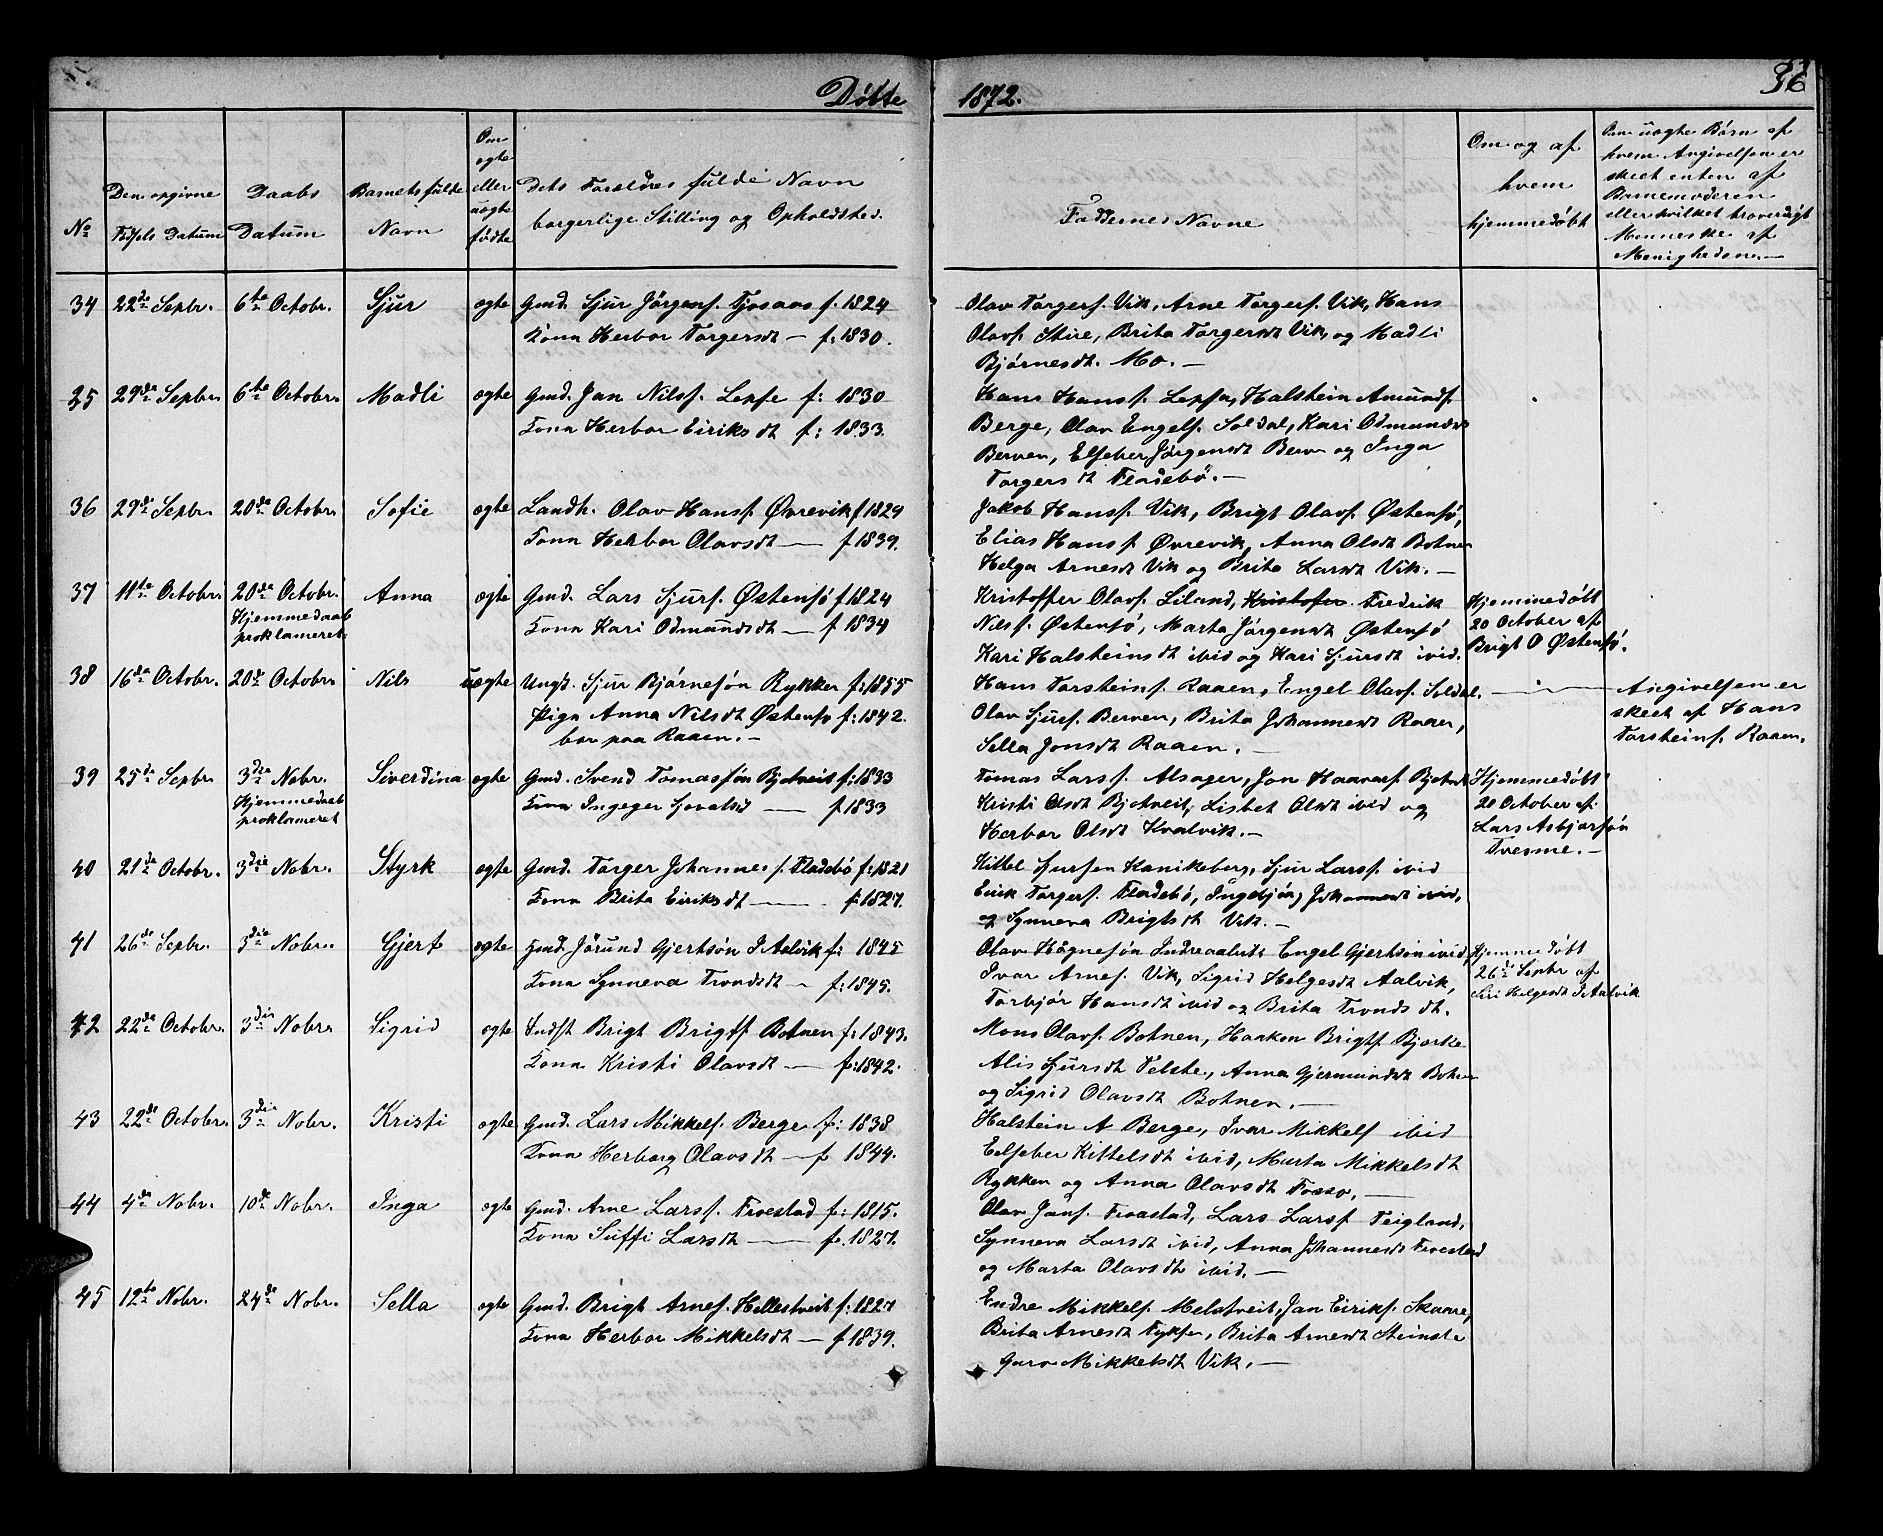 Döbte 1872. 36
No
Den opgivne Fødsels Datum
Daabs Datum
Barnets fulde Navn
Om ægte eller uægte fødte
Dets Forældres fulde Navn
borgerlige Stilling og Opholdsted.
Faddernes Navne
Om og af hvem hjemmedøbt
Om uægte Børn af
hvem Angivelsen er
skeet enten af
Barnemoderen
eller hvilket troverdigt
Menneske af
Menigheden.—
34 22de Sepbr. 6te Octobr. Sjur ægte Gmd. Sjur Jörgensf. Tjosaas f. 1824
Kona Herbor Torgersdt — f: 1830.
Olav Torgersf. Vik, Arne Torgersf. Vik, Hans
Olavsf. Stire, Brita Torgersdt Vik, og Madli
Bjørnesdt. Mo. —
25 29de Sepbr. 6te Octobr. Madli ægte Gmd. Jan Nilsf. Lepse f: 1830
Kona Herbor Eiriksdt f: 1833.
Hans Hansf. Lepse, Halstein Amundsf.
Berge, Olav Engelsf. Soldal, Kari Odmundsdt
Berven, Elseber Jörgensdt Berve og Inga
Torgersdt Fladebö. —
36 29de Sepbr. 20de Octobr. Sofie ægte Landh. Olav Hansf. Øvrevik f 1829
Kona Herbor Olavsdt — f 1839.
Jakob Hansf. Vik, Brigt Olavsf. Østensö,
Elias Hansf. Øvrevik, Anna Olsdt Botnen
Helga Arnesdt Vik og Brita Larsdt Vik. —
37 11te Octobr. 20de Octobr. Anna ægte Gmd. Lars Sjursf. Østensö f 1824
Hjemmedaab
proklameret
Kona Kari Odmundsdt — f 1834
Kristoffer Olavsf. Liland, Kristofer Fredrik
Nilsf. Østensö, Marta Jörgensdt Østensö
Kari Halsteinsdt ibid og Kari Sjursdt ibid.
Hjemmedøbt
20 October af
Brigt O Østensö.
38 16de Octobr. 20de Octobr. Nils uægte Ungd. Sjur Bjørnesøn Rykken f: 1855
Piga Anna Nilsdt Østensø f: 1842.
bor paa Raaen. —
Hans Torsteinsf. Raaen, Engel Olavsf. Soldal.
Olav Sjursf. Berven, Brita Johannesdt Raaen,
Sella Jonsdt Raaen. —
Angivelsen er
skeet af Hans
Torsteinsf. Raaen.
39 25de Sepbr. 3die Nobr. Siverdina ægte Gmd. Svend Tomassøn Bjotveit f: 1833
Hjemmedaab
proklameret
Kona Ingeger Sjovatsd — f 1833
Tomas Larsf. Alsager, Jon Haavarsf. Bjotveit
Kristi Olsdt Bjotveit, Lisbet Olsdt ibid og
Herbor Olsdt Kvalvik. —
Hjemmedøbt
20 October af
Lars Asbjørsøn
Tvesme. —
40 21de Octobr. 3die Nobr. Styrk ægte Gmd. Torger Johannesf. Fladebö f: 1821
Kona Brita Eiriksdt — f: 1827.
Kittel Sjursen Kanikeberg, Sjur Larsf. ibid
Eirik Torgersf. Fladebö, Ingebjör Johannesdt ibid,
og Synneva Brigtsdt Vik. —
41 26de Sepbr. 3die Nobr. Gjert ægte Gmd. Jörund Gjertsön I Aalvik f: 1845
Kona Synneva Trondsdt — f: 1845.
Olav Hågnesøn Indreaalvik Engel Gjertsön ibid,
Ivar Arnesf. Vik, Sigrid Helgesdt Aalvik,
Torbjör Hansdt ibid og Brita Trondsdt.
Hjemmedøbt
26de Sepbr af
Siri Helgesdt I Aalvik
42 22de Octobr. 3die Nobr. Sigrid ægte Indst Brigt Brigtsf Botnen f: 1843.
Kona Kristi Olavsdt — f: 1842.
Mons Olavsf. Botnen, Haakon Brigtsf. Bjørke
Alis Sjursdt Velste, Anna Gjermundsdt Botnen
og Sigrid Olavsdt Botnen. —
43 22de Octobr. 3die Nobr. Kristi ægte Gmd. Lars Mikkelsf. Berge f: 1838
Kona Herborg Olavsdt — f 1844.
Halstein A Berge, Ivar Mikkelsf ibid
Eelseber Kittelsdt ibid, Marta Mikkelsdt
Rykken og Anna Olavsdt Fosso. —
44 4de Nobr. 10de Nobr. Inga ægte Gmd. Arne Larsf. Froestad f: 1815.
Kona Suffi Larsdt — f. 1827.
Olav Jonsf. Froastad, Lars Larsf Teigland,
Synneva Larsdt ibid, Anna Johannesdt Froestad
og Marta Olavsdt ibid. —
45 12te Nobr. 24de Nobr. Sella ægte Gmd. Brigt Arnesf. Hellestveit f: 1827
Kona Herbor Mikkelsdt — f 1839.
Endre Mikkelsf. Melstveit, Jan Eiriksf. Skaare,
Brita Arnesdt Fyksen, Brita Arnesdt Steinstø
Guro Mikkelsdt Vik. —